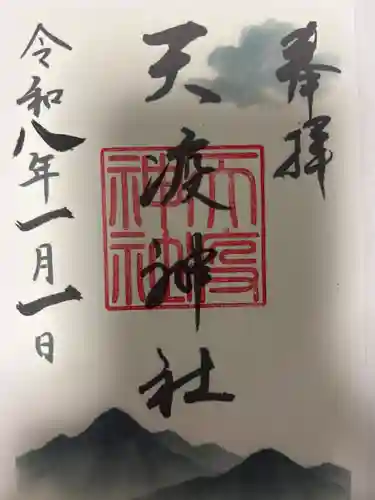 奉拝
天渡神社
天渡神社
令和八年一月一日